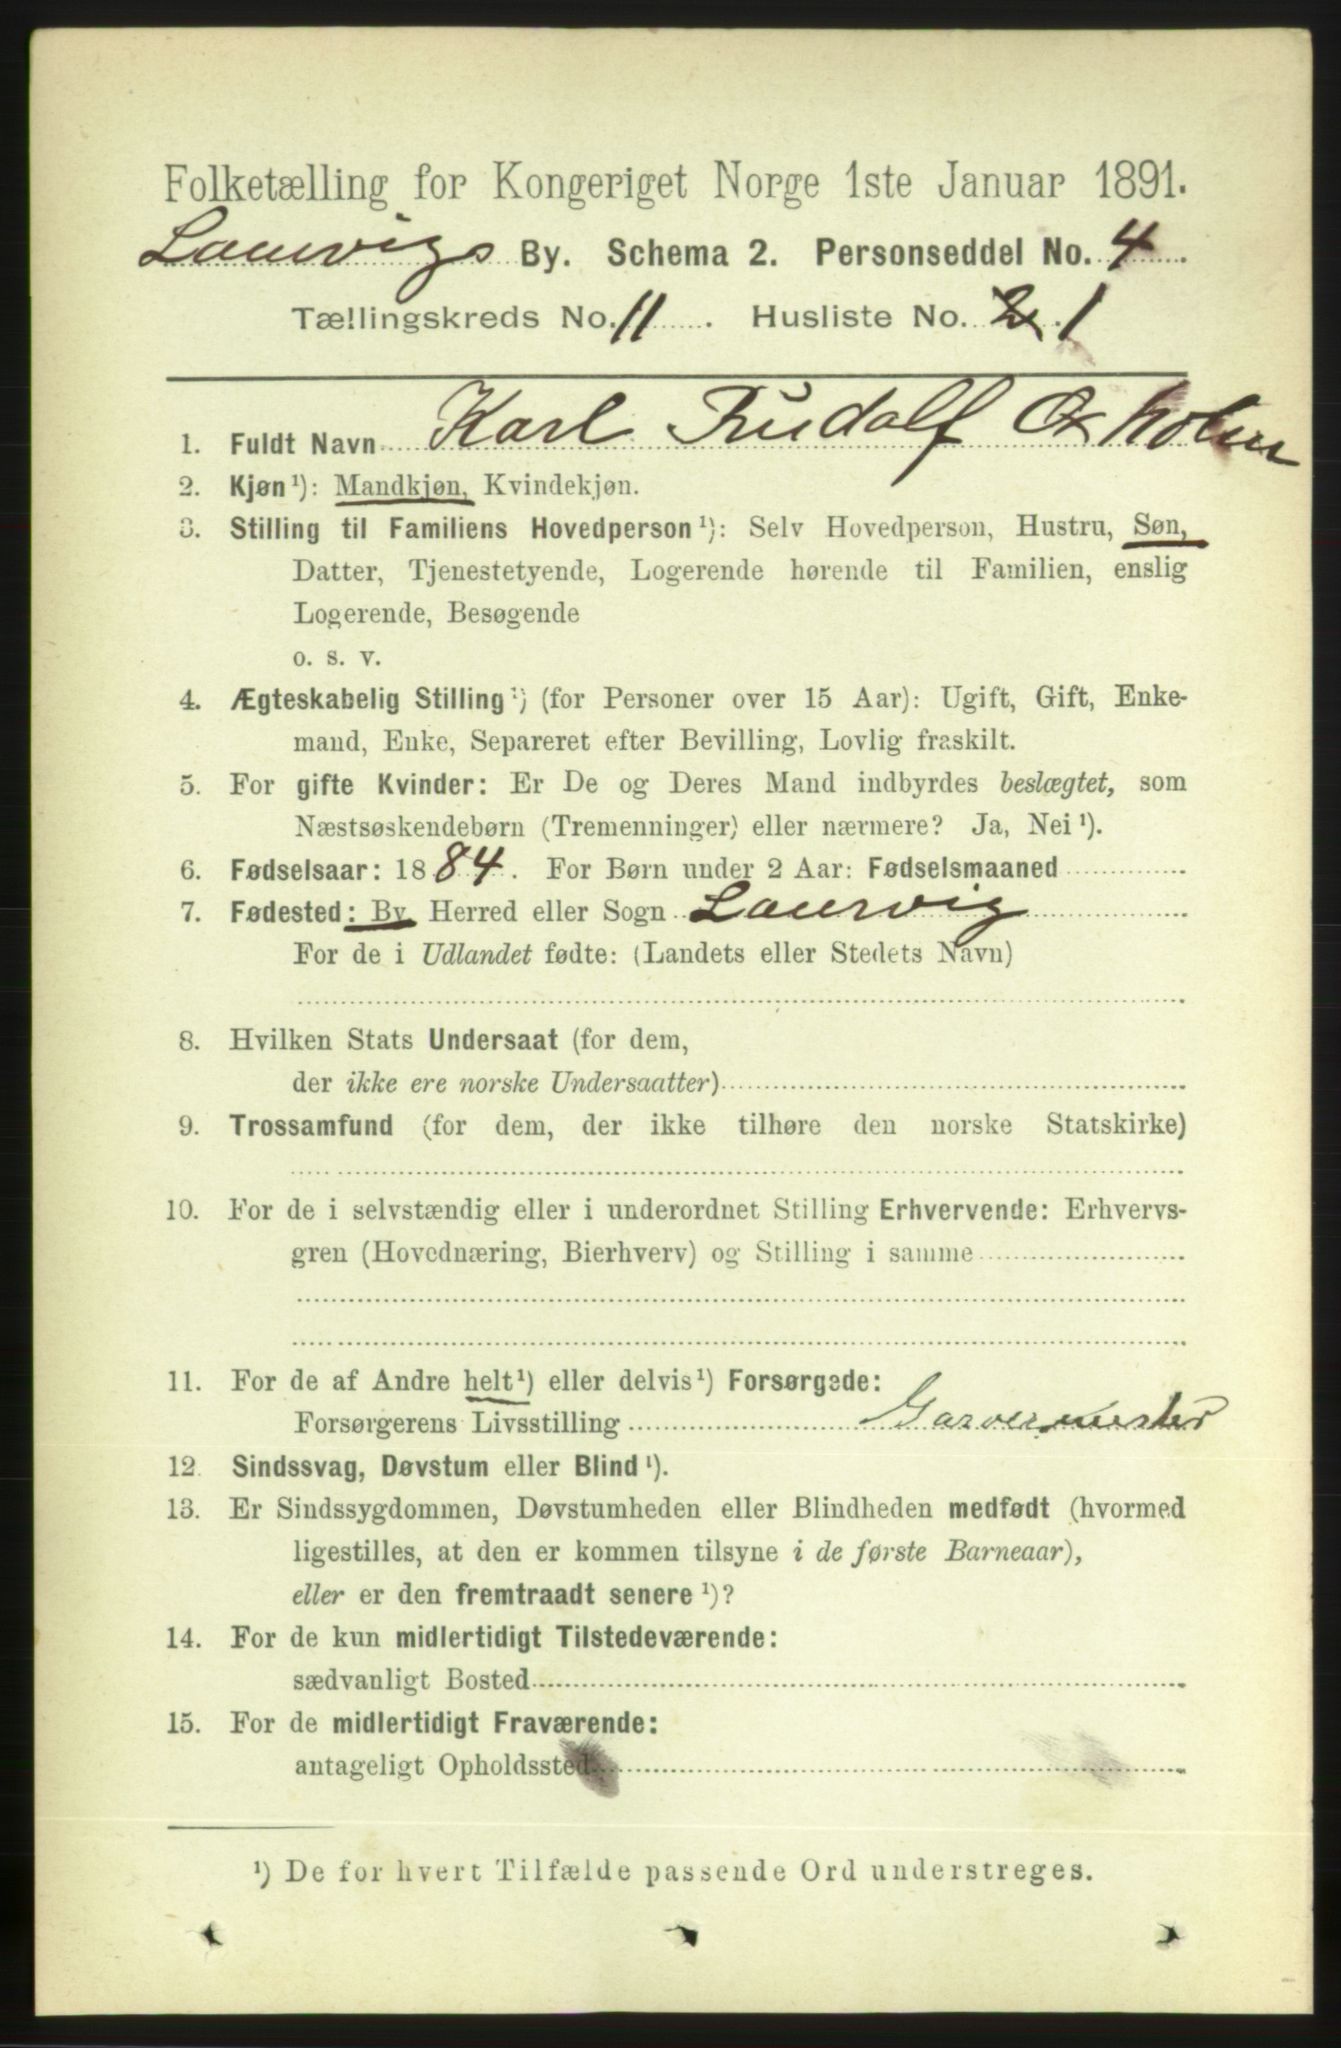 Folketælling for Kongeriget Norge 1ste Januar 1891.
Laurvigs By. Schema 2. Personseddel No. 4.
Tællingskreds No. 11. Husliste No. 2. 1
1. Fuldt Navn Karl Rudolf Oxholm
2. Kjøn ¹): Mandkjøn, Kvindekjøn.
3. Stilling til Familiens Hovedperson ¹): Selv Hovedperson, Hustru, Søn,
Datter, Tjenestetyende, Logerende hørende til Familien, enslig
Logerende, Besøgende
o. s. v.
4. Ægteskabelig Stilling ¹) (for Personer over 15 Aar): Ugift, Gift, Enke-
mand, Enke, Separeret efter Bevilling, Lovlig fraskilt.
5. For gifte Kvinder: Er De og Deres Mand indbyrdes beslægtet, som
Næstsøskendebørn (Tremenninger) eller nærmere? Ja, Nei ¹).
6. Fødselsaar: 1884. For Børn under 2 Aar: Fødselsmaaned
7. Fødested: By Herred eller Sogn Laurvig
For de i Udlandet fødte: (Landets eller Stedets Navn)
8. Hvilken Stats Undersaat (for dem,
der ikke ere norske Undersaatter)
9. Trossamfund (for dem, der ikke tilhøre den norske Statskirke)
10. For de i selvstændig eller i underordnet Stilling Erhvervende: Erhvervs-
gren (Hovednæring, Bierhverv) og Stilling i samme
11. For de af Andre helt ¹) eller delvis ¹) Forsørgede:
Forsørgerens Livsstilling Garvermester
12. Sindssvag, Døvstum eller Blind ¹).
13. Er Sindssygdommen, Døvstumheden eller Blindheden medfødt (hvormed
ligestilles, at den er kommen tilsyne i de første Barneaar),
eller er den fremtraadt senere ¹)?
14. For de kun midlertidigt Tilstedeværende:
sædvanligt Bosted
15. For de midlertidigt Fraværende:
antageligt Opholdssted
¹) De for hvert Tilfælde passende Ord understreges.